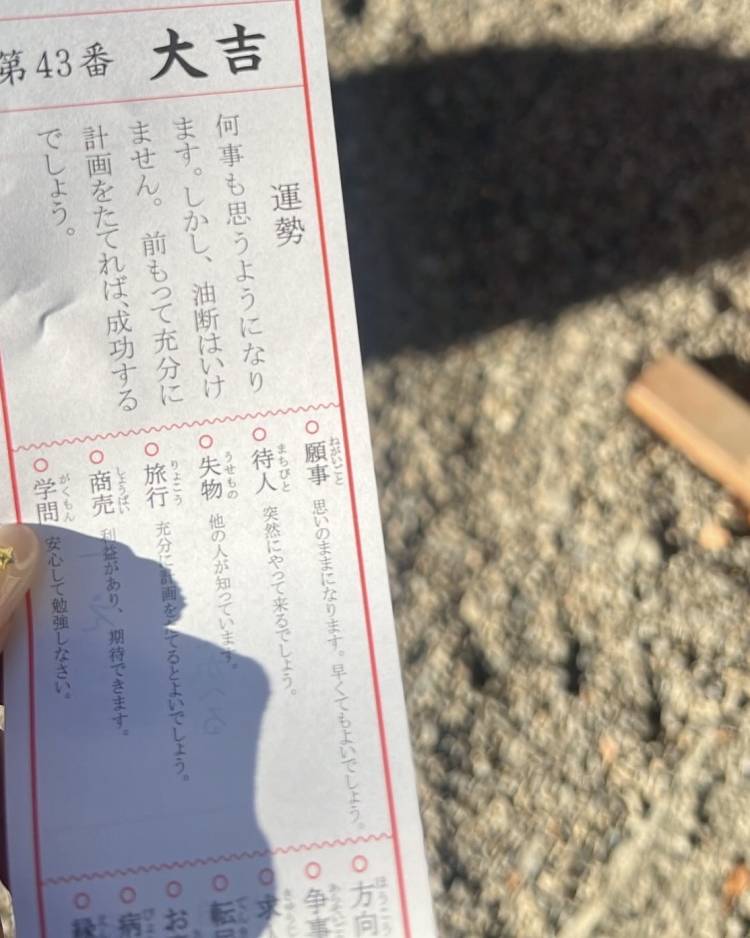 第43番 大吉
運勢
何事も思うようになり
ます。しかし、油断はいけ
ません。前もって充分に
計画をたてれば、成功する
でしょう。
願事 ねがいごと 思いのままになります。早くてもよいでしょう。
待人 まちびと 突然にやって来るでしょう。
失物 うせもの 他の人が知っています。
旅行 りょこう 充分に計画をたてるとよいでしょう。
商売 しょうばい 利益があり、期待できます。
学問 がくもん 安心して勉強しなさい。
方向 ほうこう
争事 あらそいごと
求
転居
お
病
縁